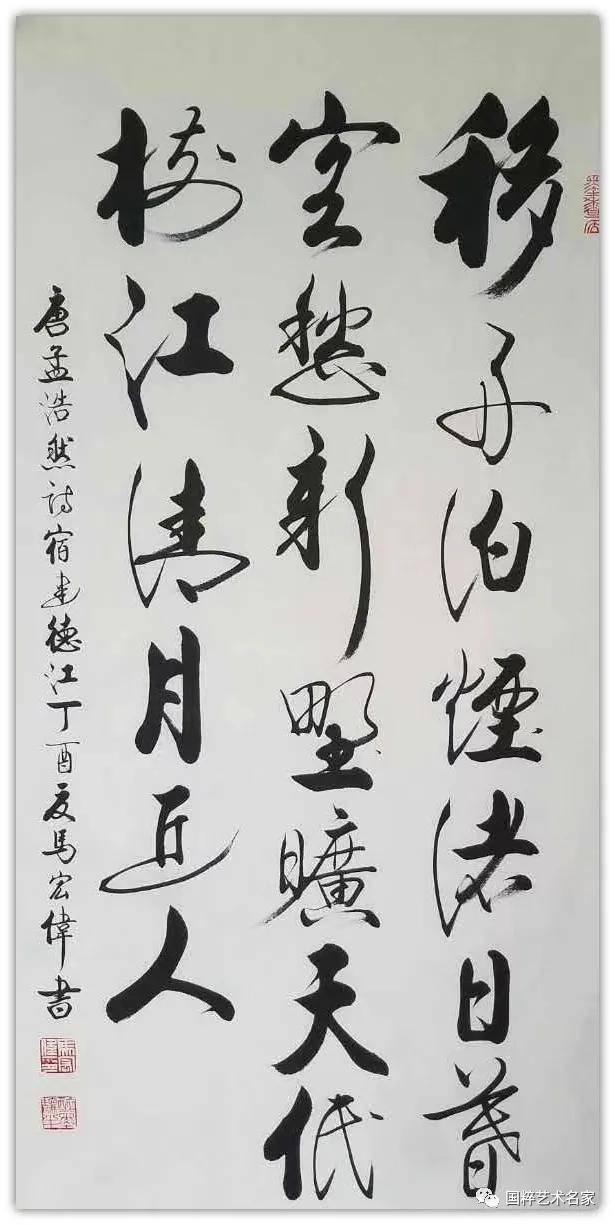 移舟泊煙渚日暮
客愁新野曠天低
樹江清月近人
唐孟浩然诗宿建德江丁酉夏馬宏偉書
国粹艺术名家